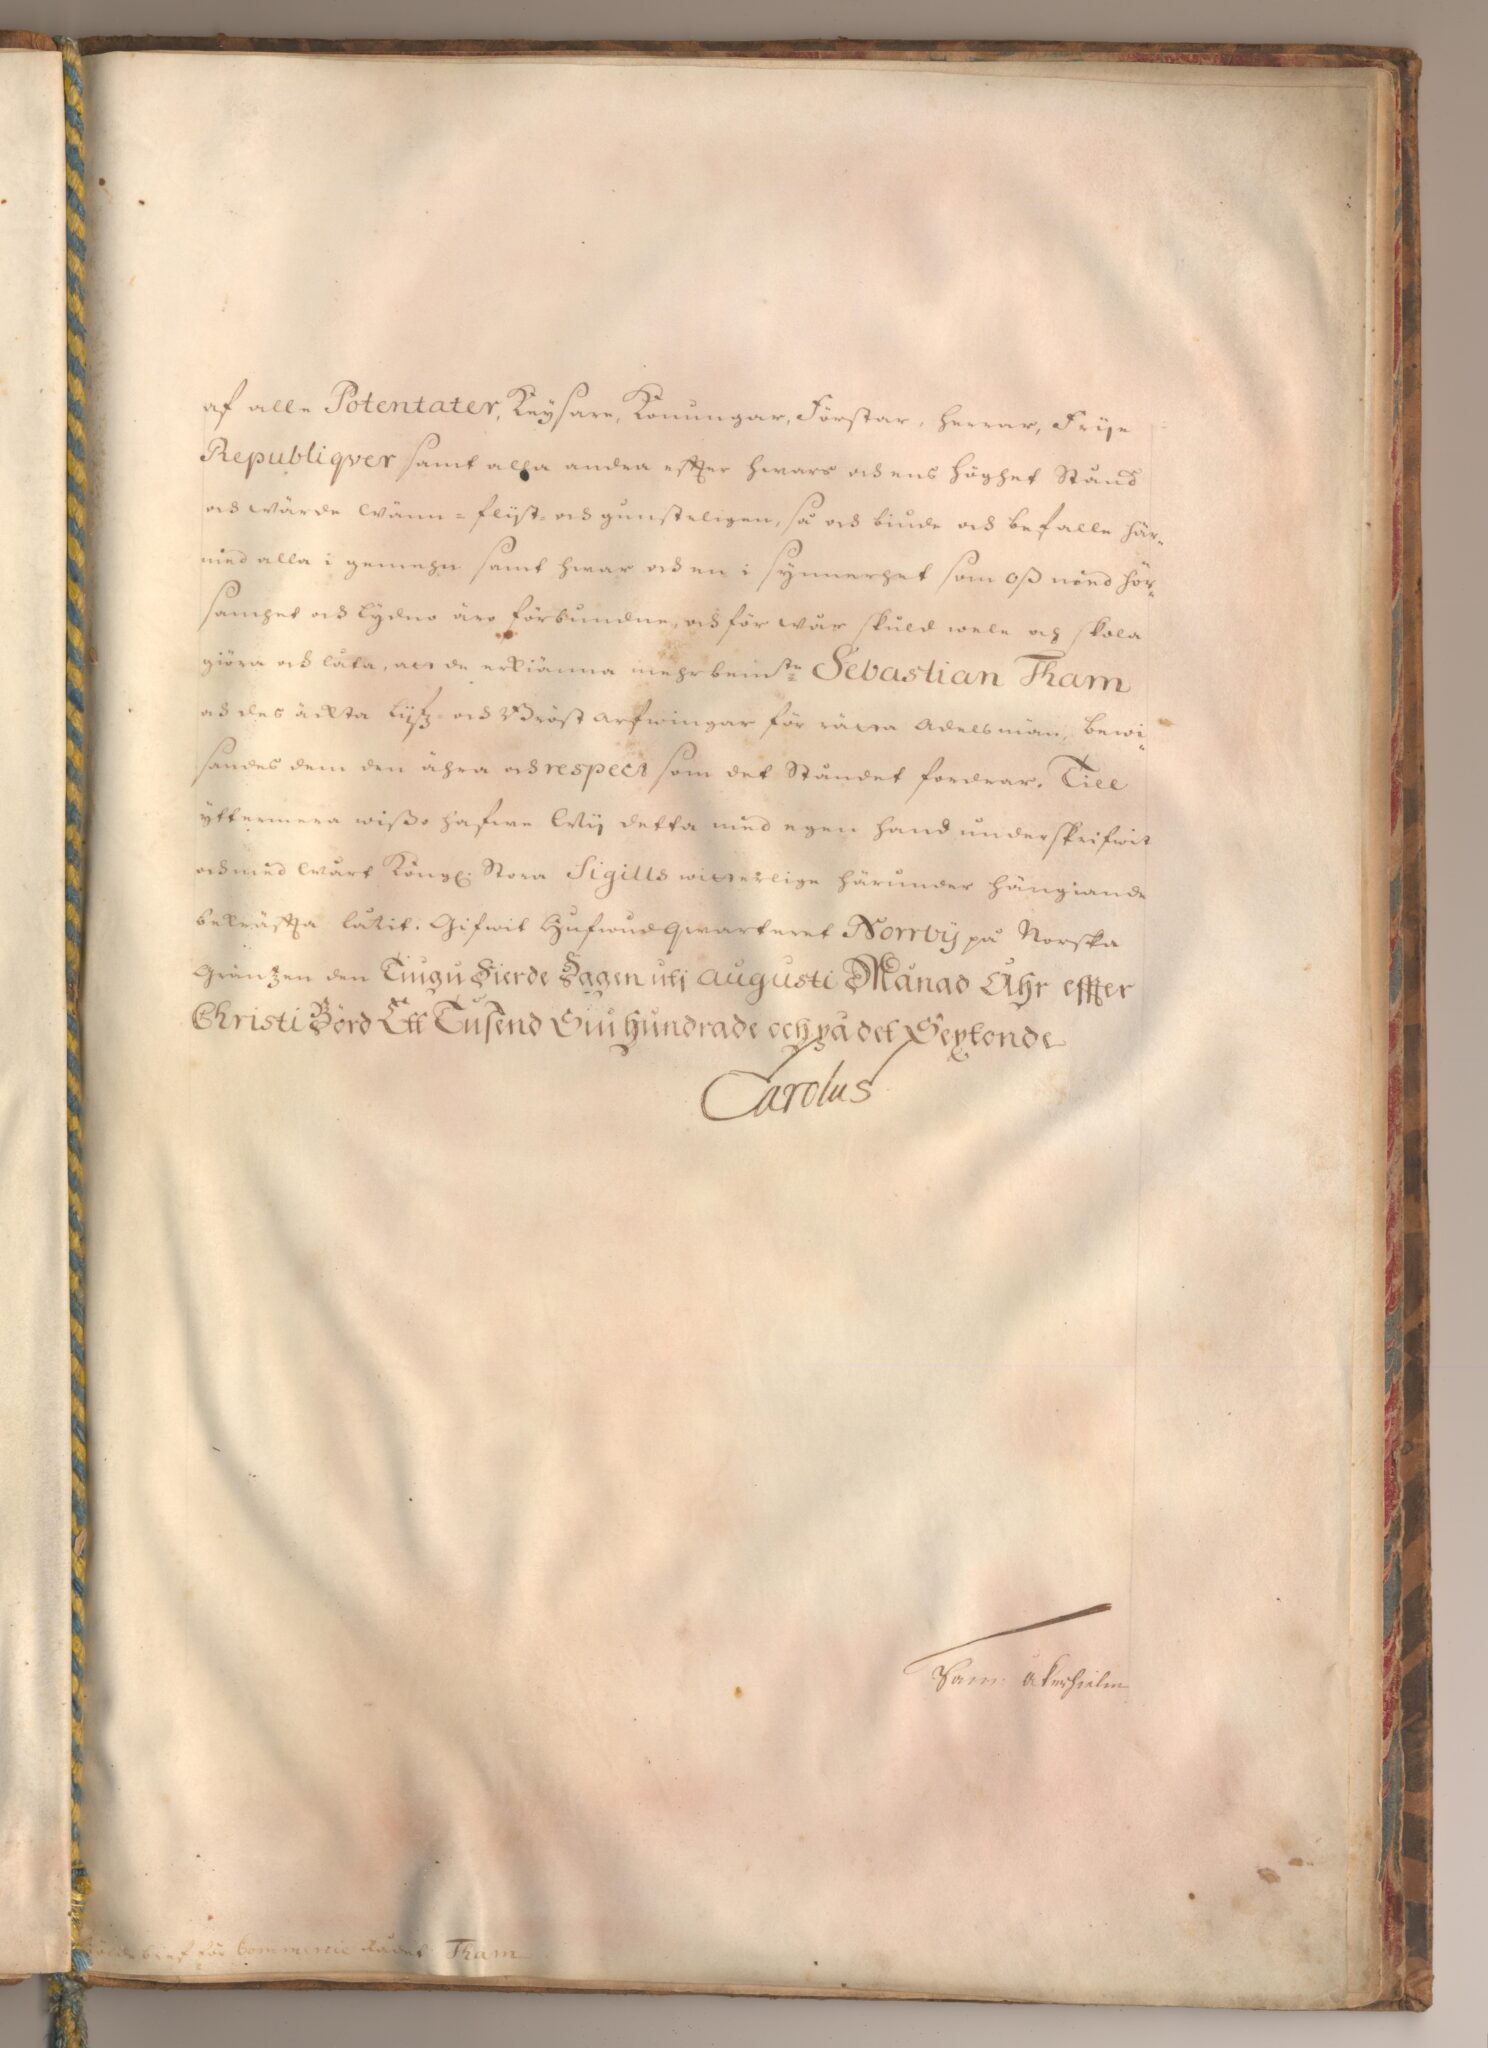 af alle Potentater, Keÿsare, Konungar, Förstar, Herrar, Frije
Republiqver samt alla andra effter hwars och ens höghet Stånd
och wärde Wänn- flijt- och gunsteligen, så och biude och befalle här-
med alla i gemehn samt hwar och en i synnerhet som oß med hör-
samhet och lÿdno äro förbundne, och för wår skuld wele och skola
giöra och låta, att de erkiänna mehrbemte Sebastian Tham
och des ächta Lijfz- och Bröst Arfwingar för rätta Adelsmän, bewi-
sandes dem den ähra och respect som det Ståndet fordrar. Till
ÿttermera wißo hafwe Wij detta med egen hand underskrifwit
och med Wårt Kongl. Stora Sigills witterlige härunder hängiande
bekräffta låtit. Gifwit Hufwudqwarteret Norrbÿ på Norska
Gräntzen den Tiugu Fierde Dagen utj Augusti Månad Åhr effter
Christi Börd Ett Tusend Siuhundrade och på det Sextonde
Carolus
Sam: Åkerhielm
bref för Commercie Rådet Tham